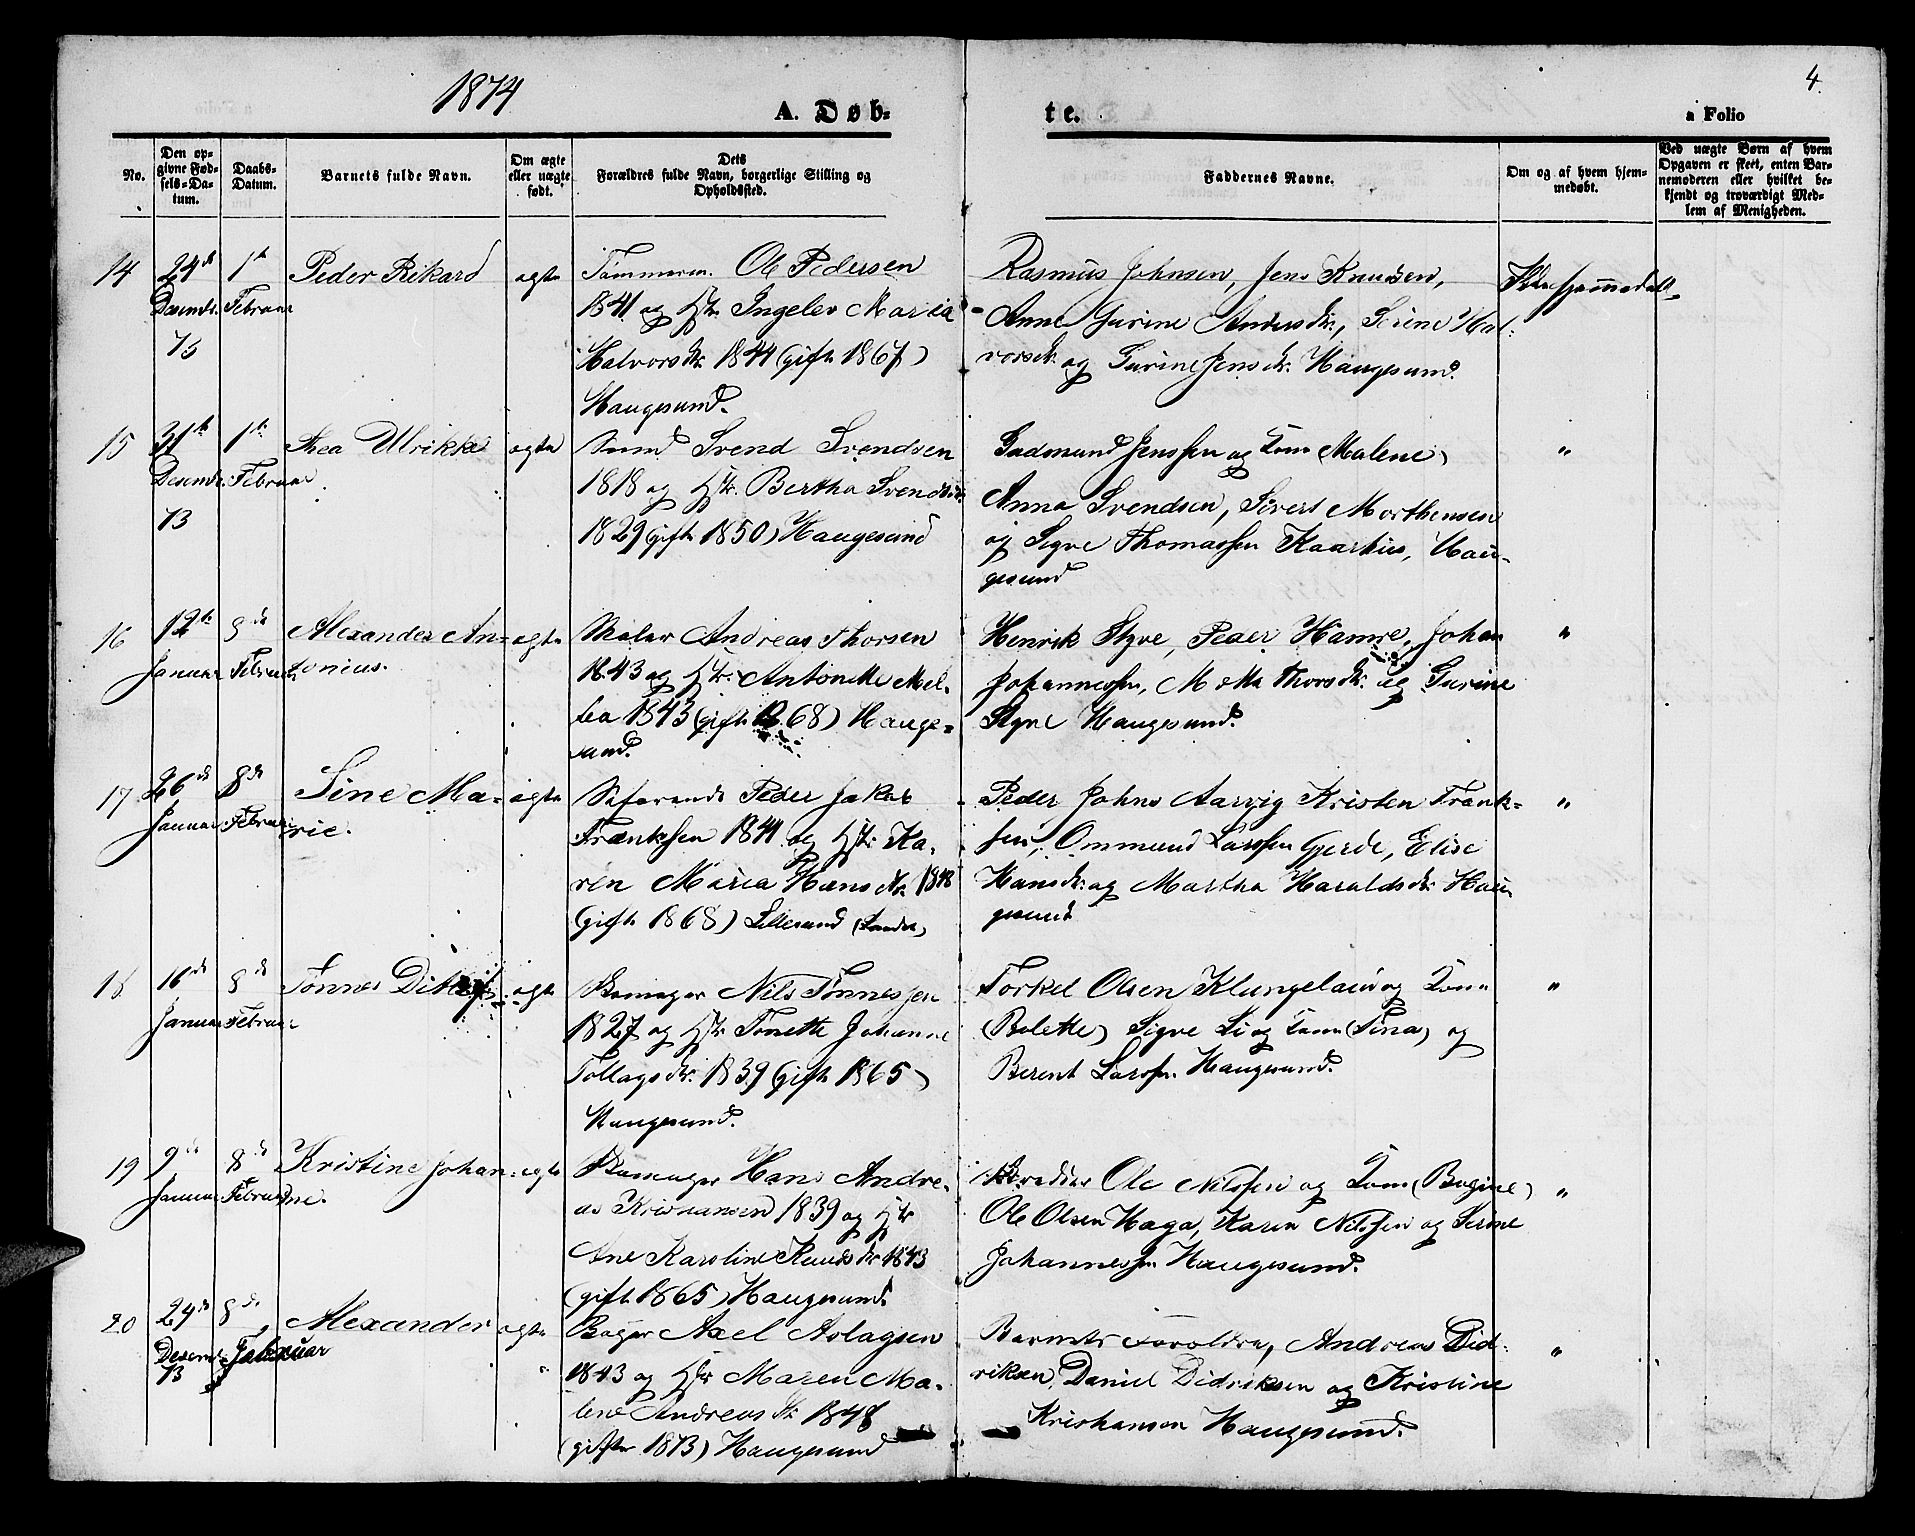 1874
4
A. Døb-
te.
a Folio
No.
Den op-
givne Fød-
sels-Da-
tum.
Daabs-
Datum.
Barnets fulde Navn.
Om ægte
eller uægte
født.
Dets
Forældres fulde Navn, borgerlige Stilling og
Opholdssted.
Faddernes Navne.
Om og af hvem hjem-
medøbt.
Ved uægte Børn af hvem
Opgaven er skeet, enten Bar-
nemoderen eller hvilket be-
kjendt og troværdigt Med-
lem af Menigheden.
14
24de
Desembr.
73
1ste
Februar
Peder Rikard
ægte
Tømmerm. Ole Pedersen
1841 og Hstr. Ingeler Maria
Halvorsdtr. 1844 (gift 1867)
Haugesund.
Rasmus Johnsen, Jens Knudsen,
Anne Gurine Andersdtr., Serine Hal-
vorsdtr. og Gurine Jensdtr. Haugesund.
Ikke hjemmedøbt
15
31te
Desembr.
73
1ste
Februar
Thea Ulrikke
ægte
Svend Svendsen
1818 og Hstr. Bertha Svendsdtr.
1829 (gift 1850) Haugesund
Gudmund Jenssen og Kone (Malene)
Anna Svendsen, Sivert Morthensen
og Sigve Thomassen Kaarhus, Hau-
gesund
"
16
12te
Januar
8de
Februar
Alexander An-
tonius.
ægte
Maler Andreas Thorsen
1843 og Hstr. Antonette Mel-
bea 1843 (gift 1868) Hauge-
sund.
Henrik Styve, Peder Hamre, Johan
Johannessen, Metta Thorsdtr. og Gurine
Styve Haugesund.
"
17
26de
Januar
8de
Februar
Sine Ma-
rie.
ægte
Søfarende Peder Jakob
Franksen 1841 og Hstr. Ka-
ren Maria Hansdtr. 1848
(gift 1868) Lillesund (Landet)
Peder Johns Aarvig Kristen Frank-
sen, Ommund Larssen Gjerde, Elise
Hansdtr. og Martha Haraldsdtr. Hau-
gesund
"
18
16de
Januar
8de
Februar
Tønnes Ditlef
ægte
Skomager Nils Tønnessen
1827 og Hstr. Tonette Johanne
Tollagsdtr. 1839 (gift 1865)
Haugesund.
Torkel Olsen Klungeland og Kone
(Bolette) Sigve Li og Kone (Sina) og
Berent Larssen Haugesund.
"
19
9de
Januar
8de
Februar
Kristine Johan-
ne.
ægte
Skomager Hans Andre-
as Kristiansen 1839 og Hstr.
Ane Karoline Knudsdtr. 1843
(gift 1865) Haugesund.
Skrædder Ole Nilssen og Kone (Bogine)
Ole Olsen Haga, Karen Nilssen og Serine
Johannessen Haugesund.
"
20
24de
Desembr.
73
8de
Februar
Alexander
ægte
Bager Axel Aslagsen
1843 og Hstr. Maren Ma-
lene Andreasdtr. 1848
(gifte 1873) Haugesund
Barnets Forældre, Andreas Did-
riksen, Daniel Didriksen og Kristine
Kristiansen Haugesund.
"